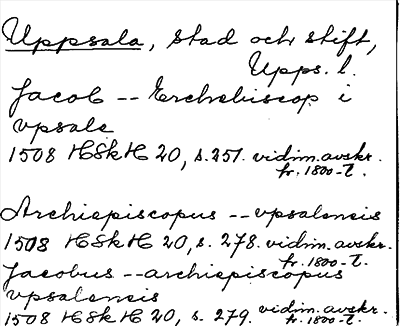 Uppsala, stad och stift,
Upps. l.
Jacob -- Erchebiscop i
vpsale
1508 HSkH 20, s. 251. vidim. avskr.
fr. 1800-t.
Archiepiscopus -- vpsalensis
1508 HSkH 20, s. 278. vidim. avskr.
fr. 1800-t.
Jacobus -- archiepiscopus
vpsalensis
1508 HSkH 20, s. 279. vidim. avskr.
fr. 1800-t.